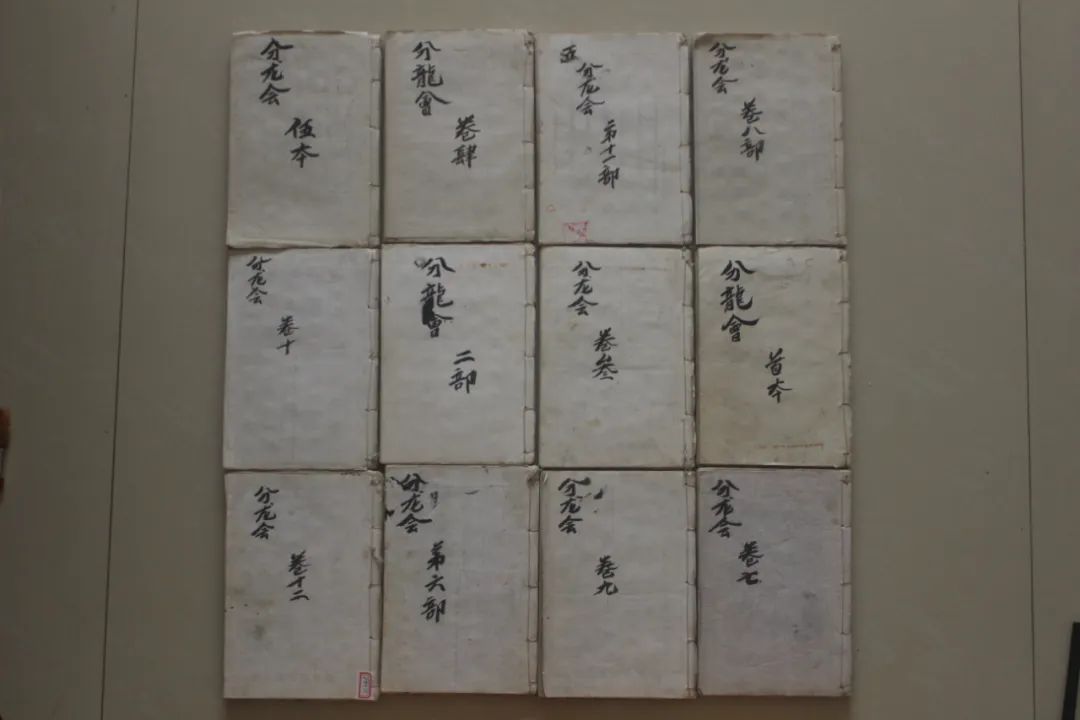 分龙会
伍本
分龍會
卷肆
分龙会
第十一部
分龙会
卷八部
分龙会
卷十
分龍會
二部
分龙会
卷叁
分龍會
首本
分龙会
卷十二
分龙会
第六部
分龙会
卷九
分龙会
卷七